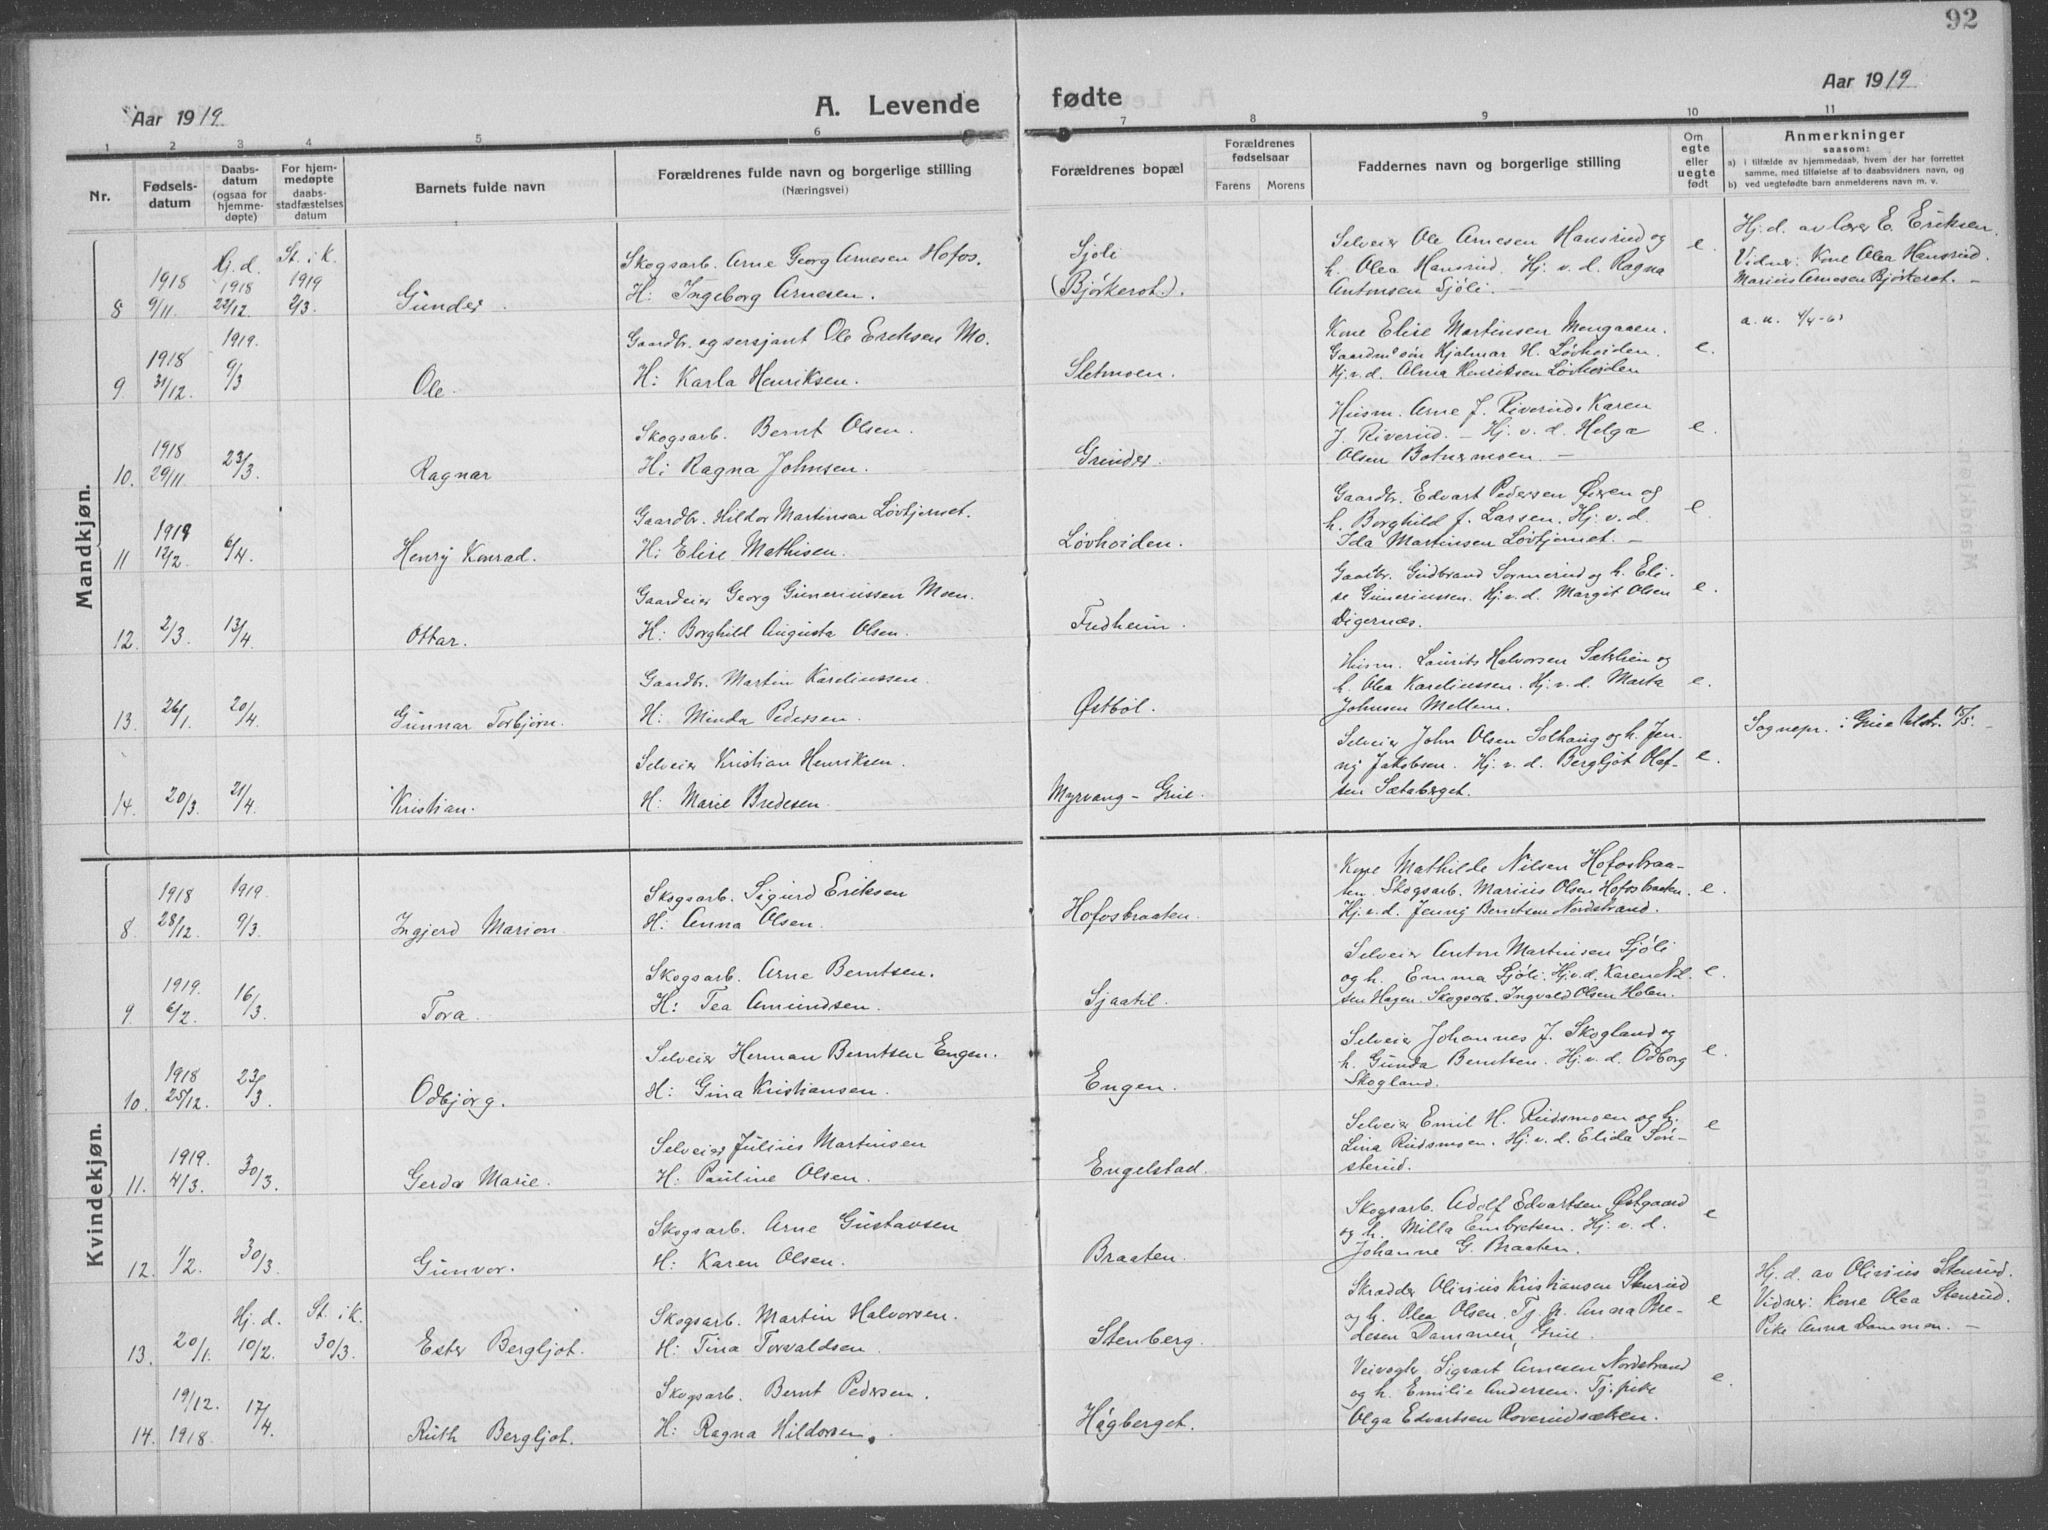 92
Aar 1919
A. Levende fødte
Aar 1919
1 2 3 4 5 6 7 8 9 10 11
Nr.
Fødsels-
datum
Daabs-
datum
(ogsaa for
hjemme-
døpte)
For hjem-
medøpte
daabs-
stadfæstelses
datum
Barnets fulde navn
Forældrenes fulde navn og borgerlige stilling
(Næringsvei)
Forældrenes bopæl
Forældrenes
fødselsaar
Farens Morens
Faddernes navn og borgerlige stilling
Om
egte
eller
uegte
født
Anmerkninger
saasom:
a) i tilfælde av hjemmedaab, hvem der har forrettet
samme, med tilføielse af to daabsvidners navn, og
b) ved uegtefødte barn anmelderens navn m. v.
Mandkjøn.
Hj. d. St. i K.
1918 1918 1919
8 9/11. 22/12. 2/3. Gunder.
Skogsarb. Arne Georg Arnesen Hofos.
H: Ingeborg Arnesen.
Sjöli
(Björkerot.).
Selveier Ole Arnesen Hansrud og
h. Olea Hansrud. Hj. v. d. Ragna
Antonsen Sjöli. —
e.
Hj. d. av lærer E. Eriksen.
Vidner: Kone Olea Hansrud.
Marius Arnesen Björkerot. —
1919.
1918
9. 31/12. 9/3 Ole.
Gaardbr. og sersjant Ole Eriksen Mo.
H: Karla Henriksen.
Sletmoen.
Kone Elise Martinsen
Hjalmar H. Lövhöiden.
Hj. v. d. Alma Henriksen Lövhöiden
e.
1918
10. 29/11. 23/3. Ragnar
Skogsarb. Bernt Olsen.
H: Ragna Johnsen.
Grinder.
Husm. Arne J. Riverud. Karen
J. Riverud. — Hj. v. d. Helga
Olsen Botnermoen. —
e.
1919
11 12/2. 6/4. Henry Konrad.
Gaardbr. Hildor Martinsen Lövtjernet.
H: Elise Mathisen.
Lövhöiden.
Gaardbr. Edvart Pedersen Öieren og
h. Borghild f. Larsen. Hj. v. d.
Ida Martinsen Lövtjernet. —
e.
12. 2/3. 13/4. Ottar.
Gaardeier Georg Guneriussen Moen.
H: Borghild Augusta Olsen.
Fredheim.
Gaardbr. Gudbrand Sormerud og h. Eli-
se Guneriussen. Hj. v. d. Margit Olsen
Digernæs.
e.
13. 26/1. 20/4. Gunnar Torbjörn.
Gaardbr. Martin Kareliussen.
H: Minda Pedersen.
Östböl.
Husm. Laurits Halvorsen Sætrlien og
h. Olea Kareliussen. Hj. v. d. Marta
Johnsen Mellem.
e.
14. 20/3. 21/4. Kristian.
Selveier Kristian Henriksen.
H: Marie Bredesen.
Myrvang – Grue.
Selveier John Olsen Solhaug og h. Jen-
ny Jakobsen. Hj. v. d. Bergljot Olaf-
sen Sætaberget.
e.
Sognepr. i Grue Utskr. 15/5.
Kvindekjøn.
1918 1919.
8. 28/12. 9/3. Ingjerd Marion.
Skogsarb. Sigurd Eriksen
H: Anna Olsen.
Hofosbraaten.
Kone Mathilde Nilsen Hofosbraa-
ten. Skogsarb. Marius Olsen Hofosbraaten.
Hj. v. d. Jenny Berntsen Nordstrand.
e.
1919.
9. 6/2. 16/3. Tora.
Skogsarb. Arne Berntsen.
H: Tea Amundsen.
Sjaatil.
Selveier Anton Martinsen Sjöli
og h. Emma Sjöli. Hj. v. d. Karen Nil-
sen Hagen. Skogsarb. Ingvald Olsen Holen.
e.
1918
10. 25/12. 23/3 Odbjörg.
Selveier Herman Berntsen Engen.
H: Gina Kristiansen.
Engen.
Selveier Johannes J. Skogland og
h. Gunda Berntsen. Hj. v. d. Odborg
Skogland.
e.
1919.
11. 4/3. 30/3. Gerda Marie.
Selveier Julius Martinsen
H: Pauline Olsen.
Engelstad.
Selveier Emil H. Rudsmoen og h.
Lina Rudsmoen. Hj. v. d. Elida Sön-
sterud.
e
12. 1/2. 30/3. Gunvor.
Skogsarb. Arne Gustavsen
H: Karen Olsen.
Braaten.
Skogsarb. Adolf Edvartsen Östgaard
og h. Milla Embretsen. Hj. v. d.
Johanne G. Braaten.
e
Hj. d. St. i K.
13. 20/1. 10/2. 30/3. Ester Bergljot.
Skogsarb. Martin Halvorsen.
H: Tina Torvaldsen.
Stenberg.
Skrædder Olinius Kristiansen Stenrud
og h. Olea Olsen. Tj. p. Anna Bre-
desen Dammen, Grue.
e
Hj. d. av Olinius Stenrud.
Vidner: Kone Olea Stenrud.
Pike Anna Dammen. —
19/12.
14. 1918. 17/4. Ruth Bergljot.
Skogsarb. Bernt Pedersen.
H: Ragna Hildorsen.
Hågberget.
Veivogter Sigvart Arnesen Nordstrand
og h. Emilie Andersen. Tj. pike
Olga Edvartsen Roverudsætren.
e.